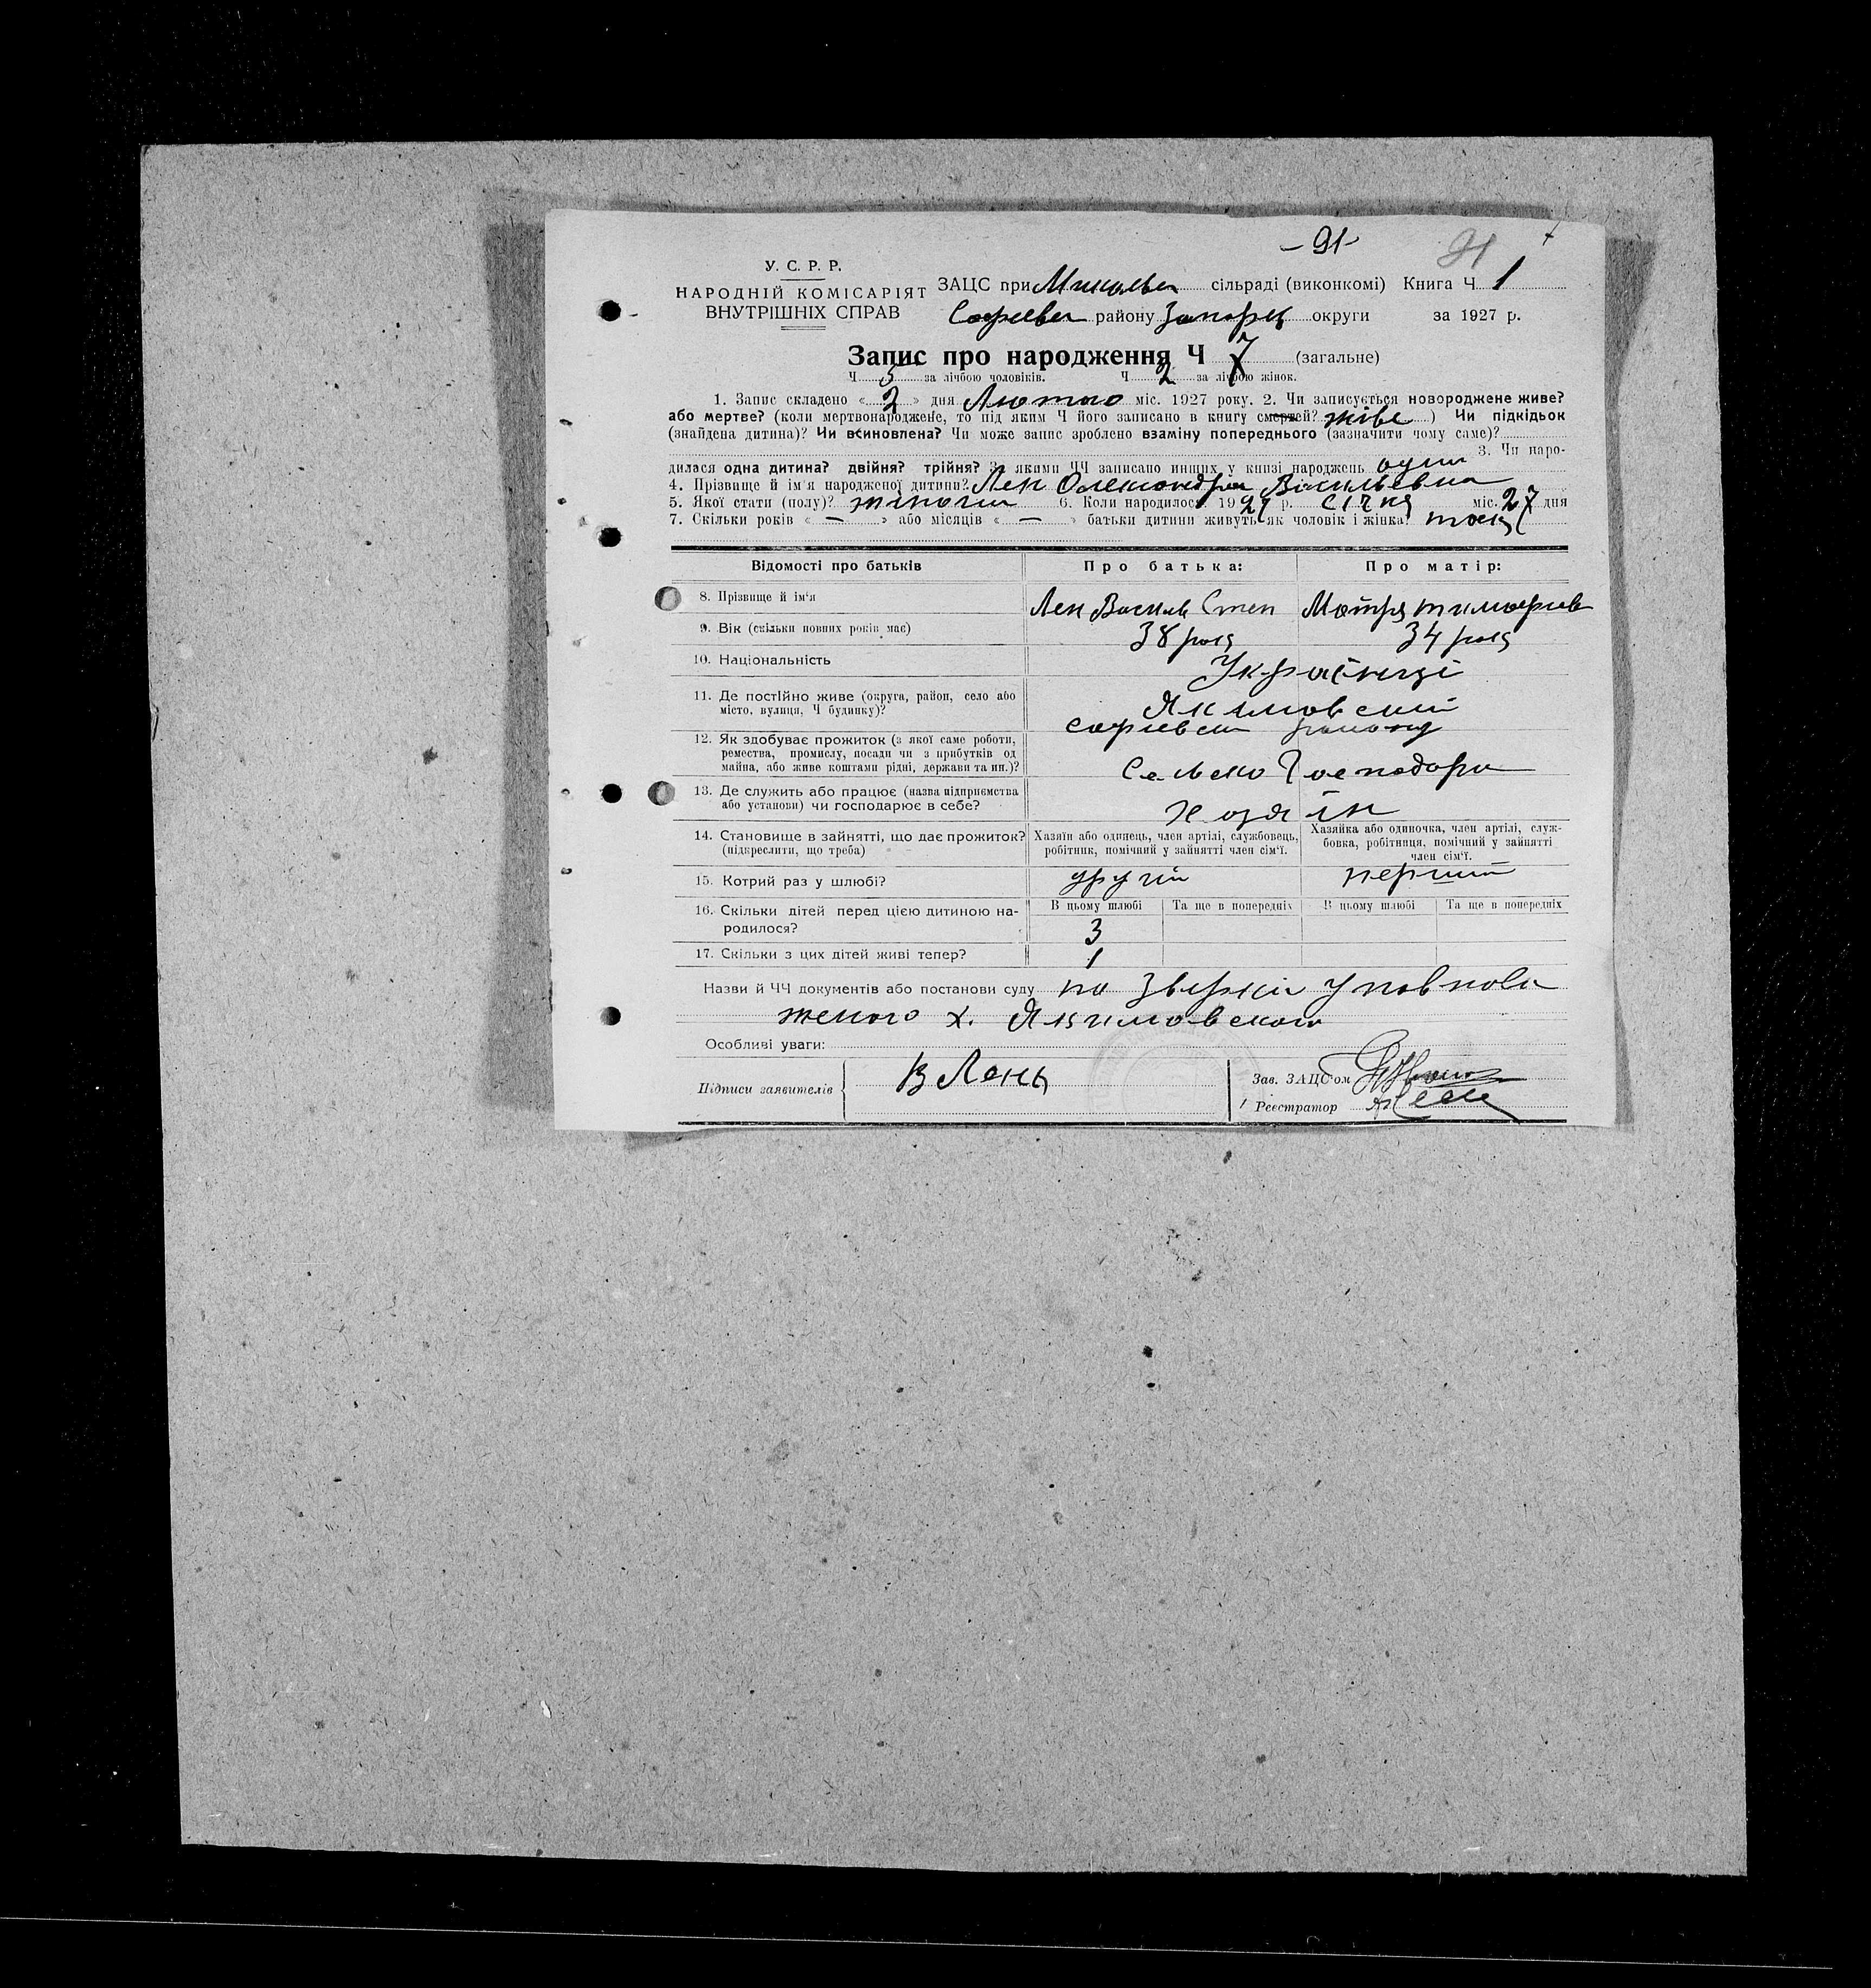 -91- 91
У. С. Р. Р.
НАРОДНІЙ КОМІСАРІЯТ
ВНУТРІШНІХ СПРАВ
ЗАЦС при сільраді (виконкомі) Книга Ч 1
Софиевск району Запорец округи за 1927 р.
Запис про народження Ч 7 (загальне)
Ч 5 за лічбою чоловіків. Ч 2 за лічбою жінок.
1. Запис складено « 2 » дня Лютого міс. 1927 року. 2. Чи записується новороджене живе?
або мертве? (коли мертвонароджене, то під яким Ч його записано в книгу смертей? живе ) Чи підкідьок
(знайдена дитина)? Чи всиновлена? Чи може запис зроблено взаміну попереднього (зазначити чому саме)?
3. Чи наро-
дилася одна дитина? двійня? трійня? За якими ЧЧ записано инших у книзі народжень один
4. Прізвище й ім'я народженої дитини? Лен Олександра Васильевна
5. Якої стати (полу)? жіноча 6. Коли народилося 1927 р. Січня міс. 27 дня
7. Скільки років « — » або місяців « — » батьки дитини живуть як чоловік і жінка?
Відомості про батьків Про батька: Про матір:
8. Прізвище й ім'я Лен Василь Степ Мотря тимофиев
9. Вік (скільки повних років має) 38 рокв 34 рокв
10. Національність Українці
11. Де постійно живе (округа, район, село або
місто, вулиця, Ч будинку)? Якимовский
софиевск району
12. Як здобуває прожиток (з якої саме роботи,
ремества, промислу, посади чи з прибутків од
майна, або живе коштами рідні, держави та ин.)? Сельско Господари
13. Де служить або працює (назва підприємства
або установи) чи господарює в себе? Хозяін
14. Становище в зайнятті, що дає прожиток?
(підкреслити, що треба)
Хазяїн або одинець, член артілі, службовець,
робітник, помічний у зайнятті член сім'ї.
Хазяйка або одиночка, член артілі, служ-
бовка, робітниця, помічний у зайнятті
член сім'ї.
15. Котрий раз у шлюбі? другий перший
16. Скільки дітей перед цією дитиною на-
родилося?
В цьому шлюбі Та ще в попередніх В цьому шлюбі Та ще в попередніх
3
17. Скільки з цих дітей живі тепер? 1
Назви й ЧЧ документів або постанови суду по Зверки уповнова
женого х. Якимовского
Особливі уваги:
Підписи заявителів В Лень
Зав. ЗАЦС'ом
Реєстратор